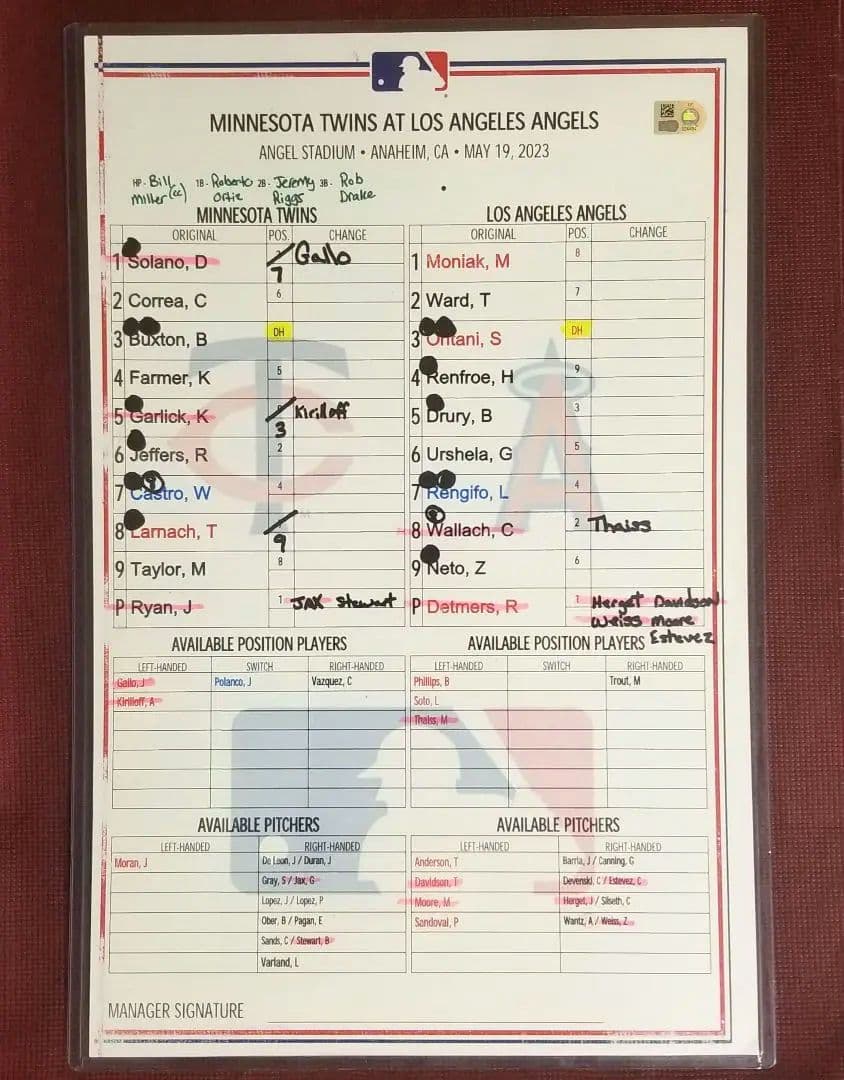 MINNESOTA TWINS AT LOS ANGELES ANGELS
ANGEL STADIUM • ANAHEIM, CA • MAY 19, 2023
HP- Bill Miller (cc) 1B- Roberto Ortiz 2B- Jeremy Riggs 3B- Rob Drake
MINNESOTA TWINS
ORIGINAL POS. CHANGE
1 Solano, D 7 Gallo
2 Correa, C 6
3 Buxton, B DH
4 Farmer, K 5
5 Garlick, K 3 Kirilloff
6 Jeffers, R 2
7 Castro, W 4
8 Larnach, T 9
9 Taylor, M 8
P Ryan, J 1 JAX Stewart
LOS ANGELES ANGELS
ORIGINAL POS. CHANGE
1 Moniak, M 8
2 Ward, T 7
3 Ohtani, S DH
4 Renfroe, H 9
5 Drury, B 3
6 Urshela, G 5
7 Rengifo, L 4
8 Wallach, C 2 Thaiss
9 Neto, Z 6
P Detmers, R 1 Herget Davidson
Weiss Moore
Estevez
AVAILABLE POSITION PLAYERS
LEFT-HANDED SWITCH RIGHT-HANDED
Gallo, J Polanco, J Vazquez, C
Kirilloff, A
AVAILABLE POSITION PLAYERS
LEFT-HANDED SWITCH RIGHT-HANDED
Phillips, B Trout, M
Soto, L
Thaiss, M
AVAILABLE PITCHERS
LEFT-HANDED RIGHT-HANDED
Moran, J De Leon, J / Duran, J
Gray, S / Jax, G
Lopez, J / Lopez, P
Ober, B / Pagan, E
Sands, C / Stewart, B
Varland, L
AVAILABLE PITCHERS
LEFT-HANDED RIGHT-HANDED
Anderson, T Barria, J / Canning, G
Davidson, T Devenski, C / Estevez, C
Moore, M Herget, J / Silseth, C
Sandoval, P Wantz, A / Weiss, Z
MANAGER SIGNATURE